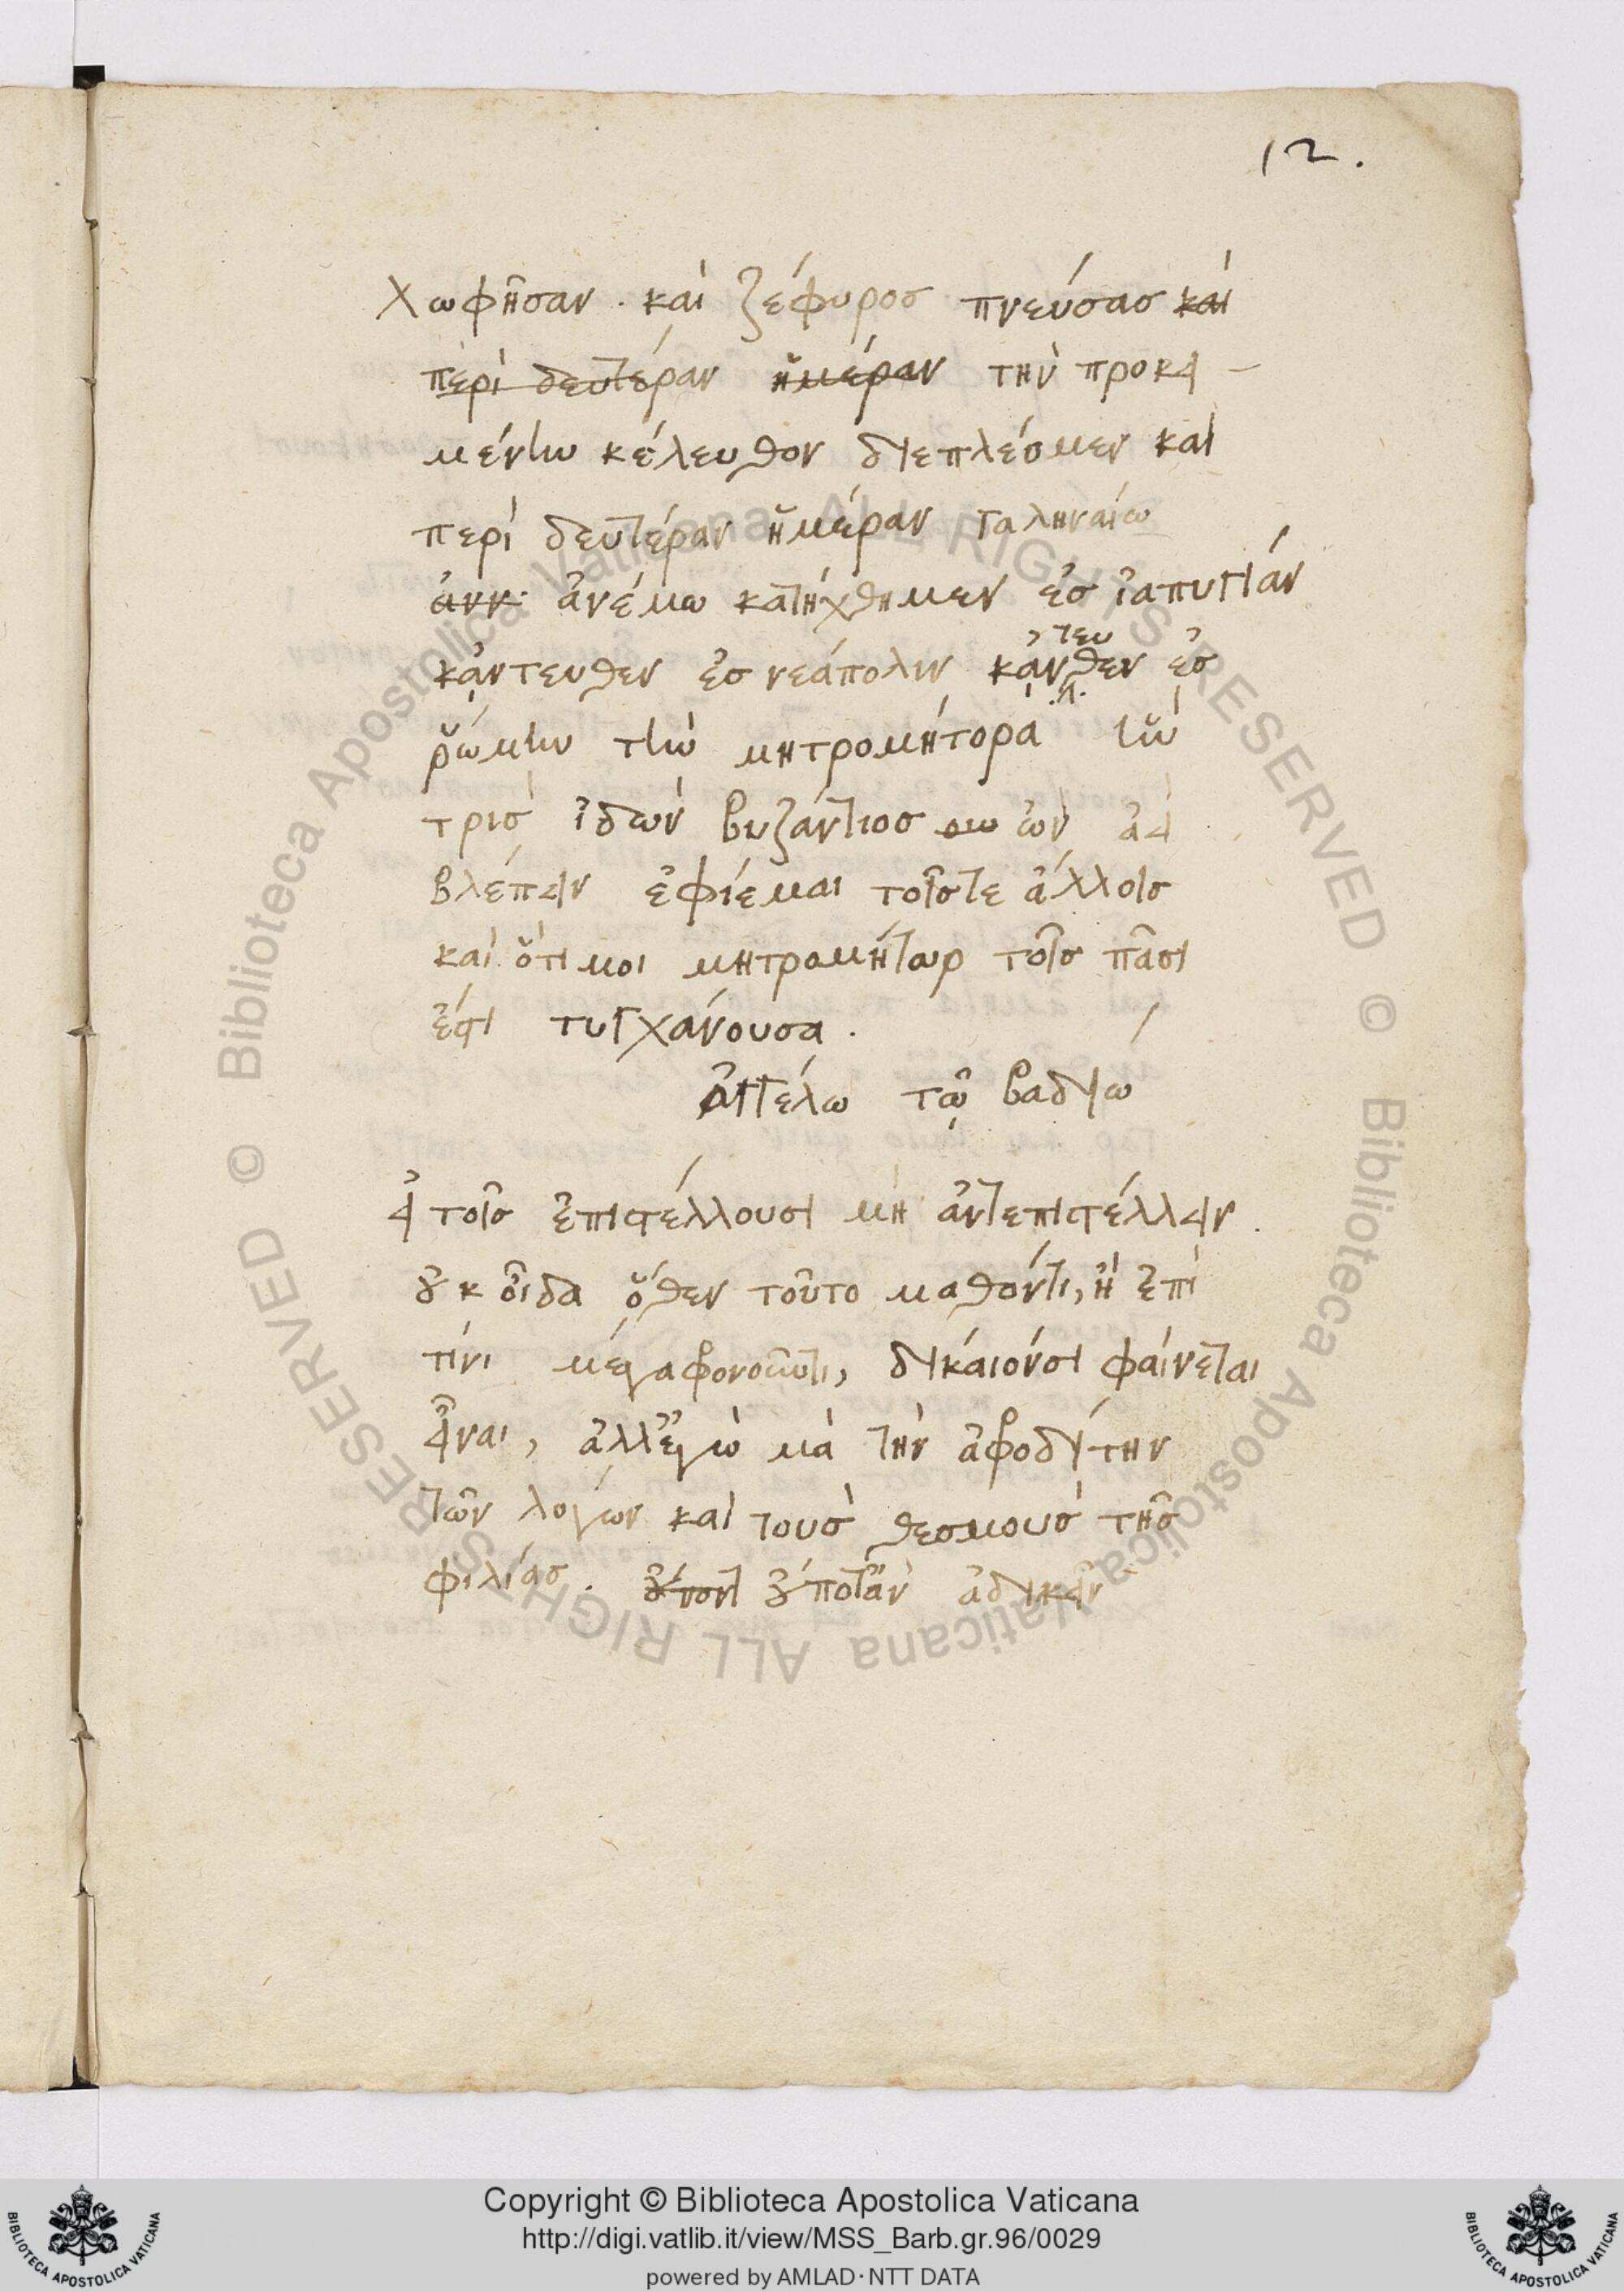 12.
χωφῆσαν. καὶ ζέφυρος πνεύσας καὶ
περὶ δευτέραν ἡμέραν τὴν προκει-
μένην κέλευθον διεπλέομεν καὶ
περὶ δευτέραν ἡμέραν γαληναίω
ἀνέμω κατήχθημεν ἐς ἰαπυγίαν
κᾀντευθεν ἐς νεάπολιν κᾀντευθεν ἐς
ῥώμην τὴν μητρομήτορά τὴν
τρισ ἰδὼν βυζάντιος ὢν ἀεὶ
βλέπειν ἐφίεμαι τοῖστε ἄλλοις
καὶ ὅτι μοι μητρομήτωρ τοῖς πᾶσι
ἐστι τυγχάνουσα.
ἀγγέλω τῷ βαδίω
εἰ τοῖς ἐπιστέλλουσι μὴ ἀντεπιστέλλειν
οὐκ οἶδα ὅθεν τοῦτο μαθόντι, ἢ ἐπὶ
τίνι μέγαφρονοῦντι, δίκαιόνσι φαίνεται
εἶναι, ἀλλἐγὼ μὰ τὴν ἀφροδίτην
τῶν λογίων καὶ τοὺς θεσμοὺς τῆς
φιλίας. οὔποτἂν ἀδικεῖν
Copyright © Biblioteca Apostolica Vaticana
http://digi.vatlib.it/view/MSS_Barb.gr.96/0029
powered by AMLAD·NTT DATA
BIBLIOTECA APOSTOLICA VATICANA
BIBLIOTECA APOSTOLICA VATICANA
© Biblioteca Apostolica Vaticana ALL RIGHTS RESERVED
© Biblioteca Apostolica Vaticana ALL RIGHTS RESERVED